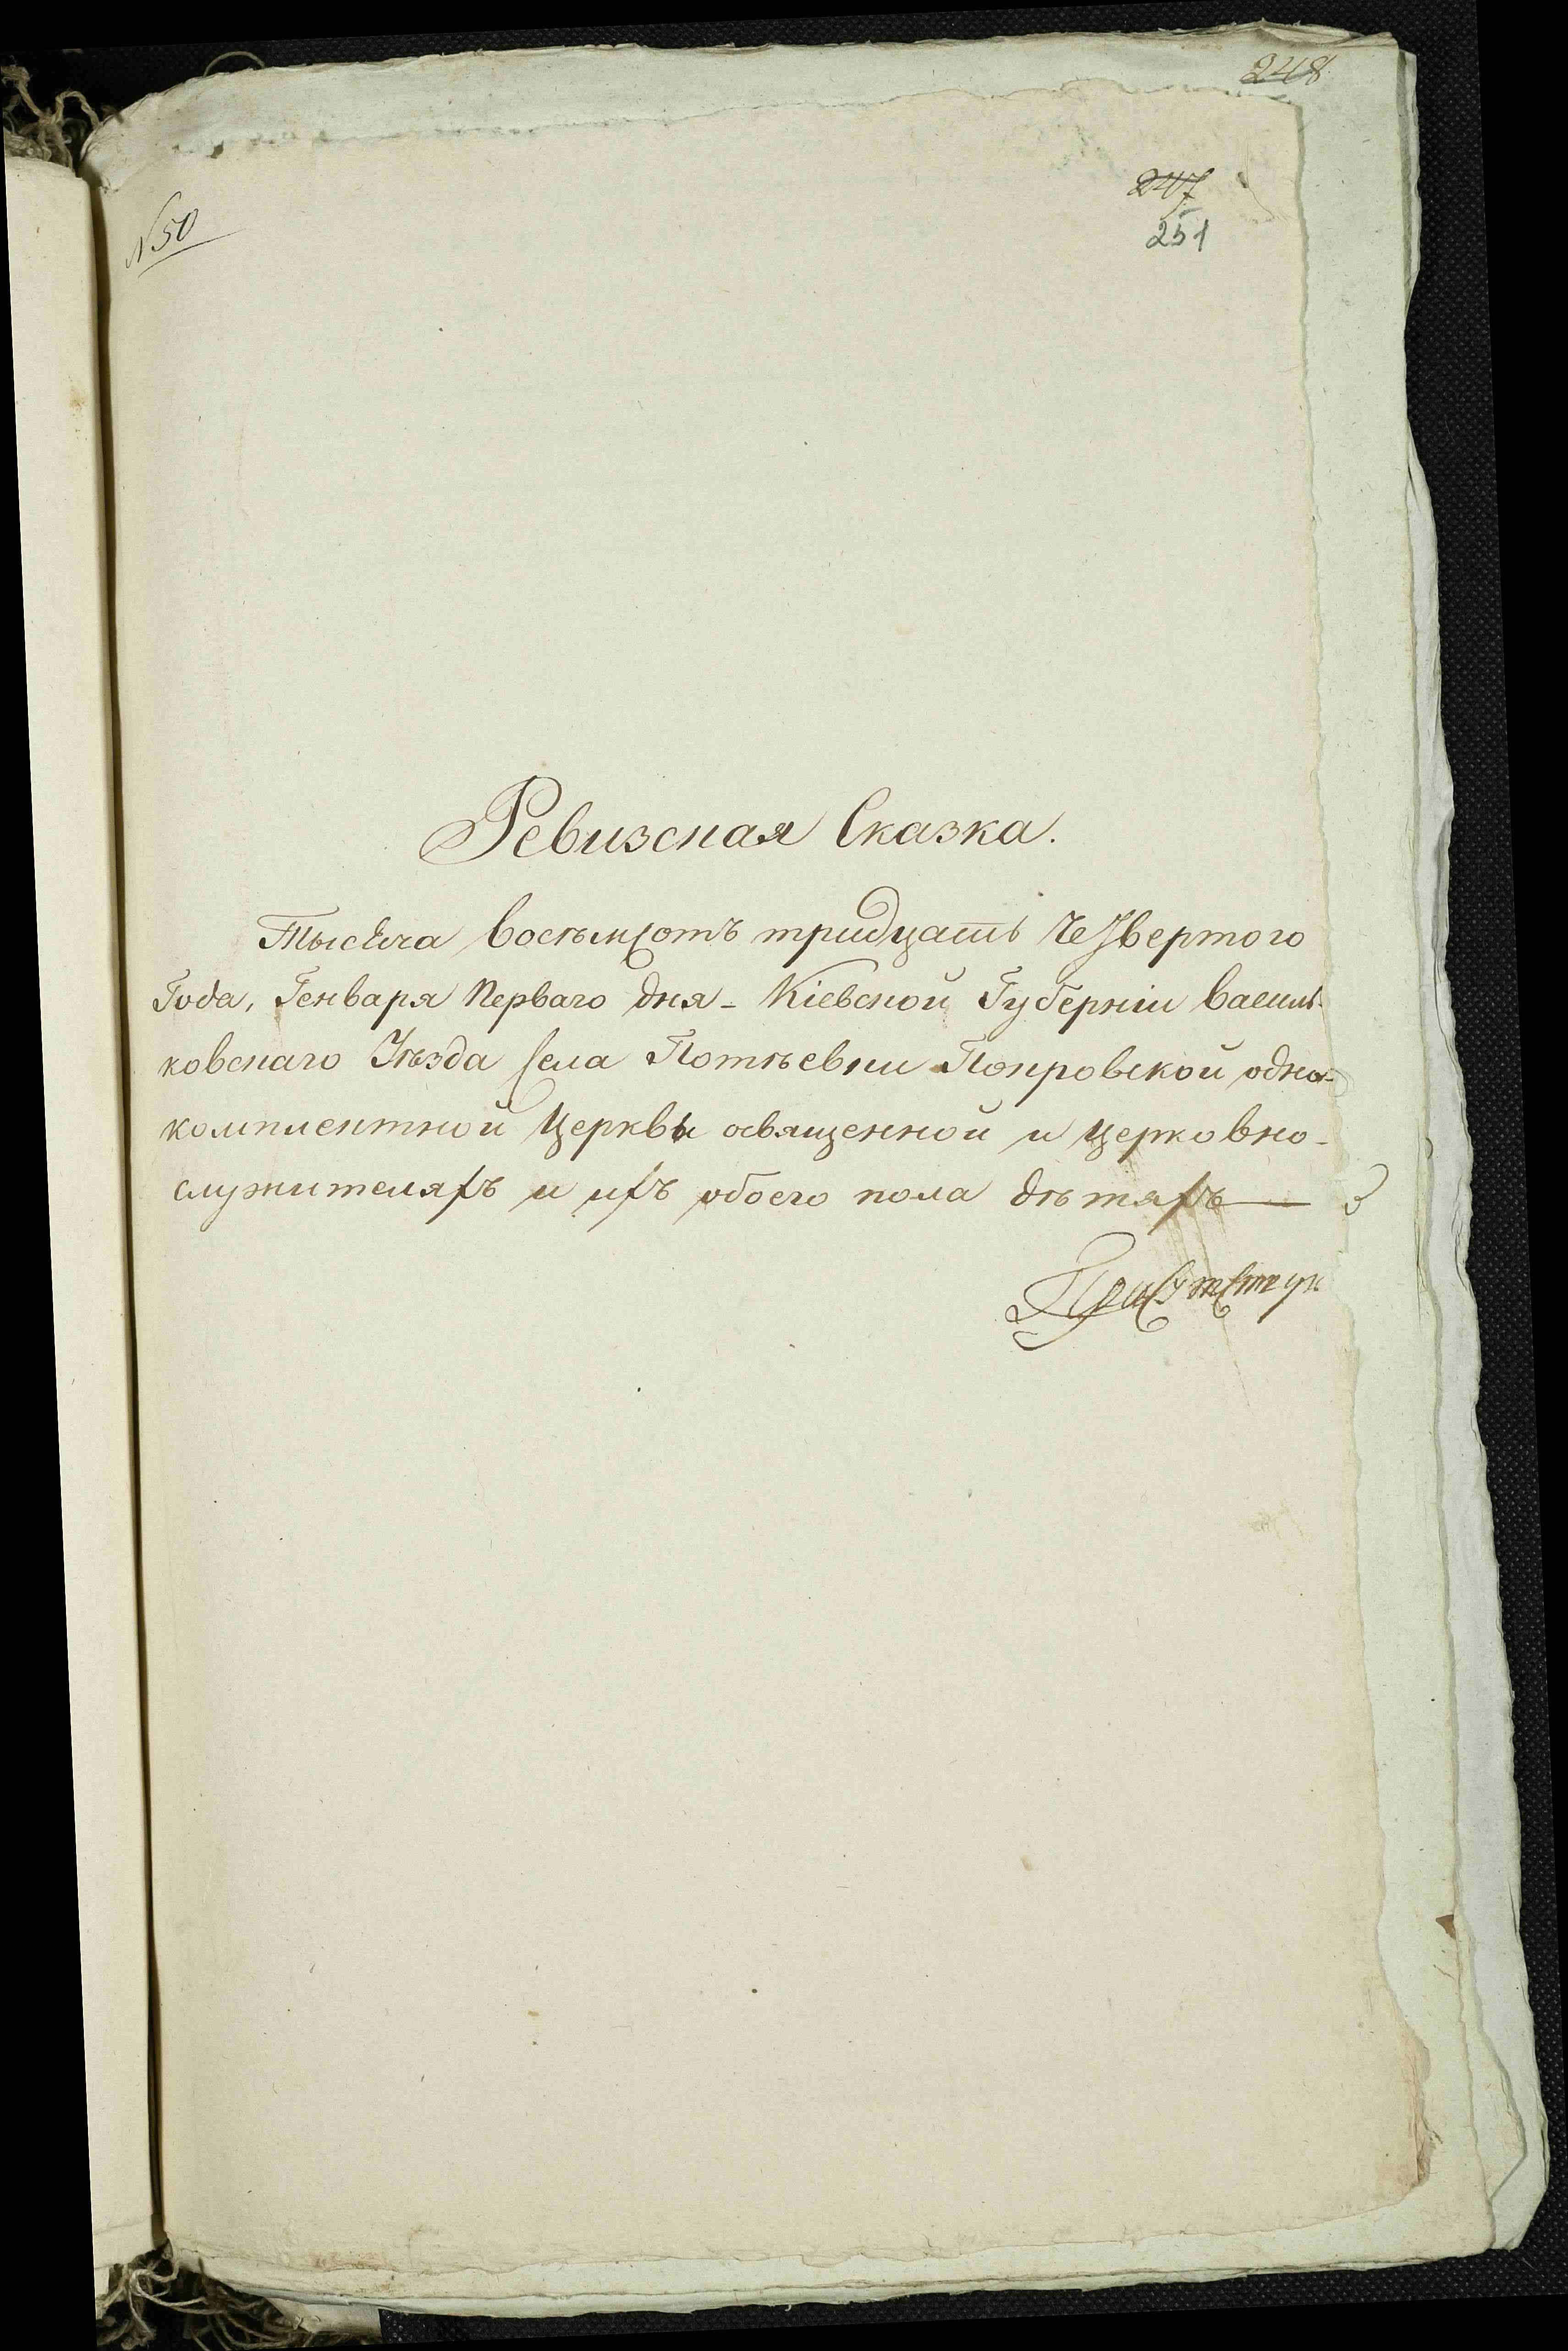 248
247
251
N 50
Ревизская Сказка.
Тысяча восѣмсотъ тридцать четвертого
Года, Генваря Перваго дня - Кіевской Губерніи Василь-
ковскаго Уѣзда села Потѣевки Покровской одно-
комплектной Церкви освященной и церковно-
служителяхъ и ихъ обоего пола дѣтяхъ